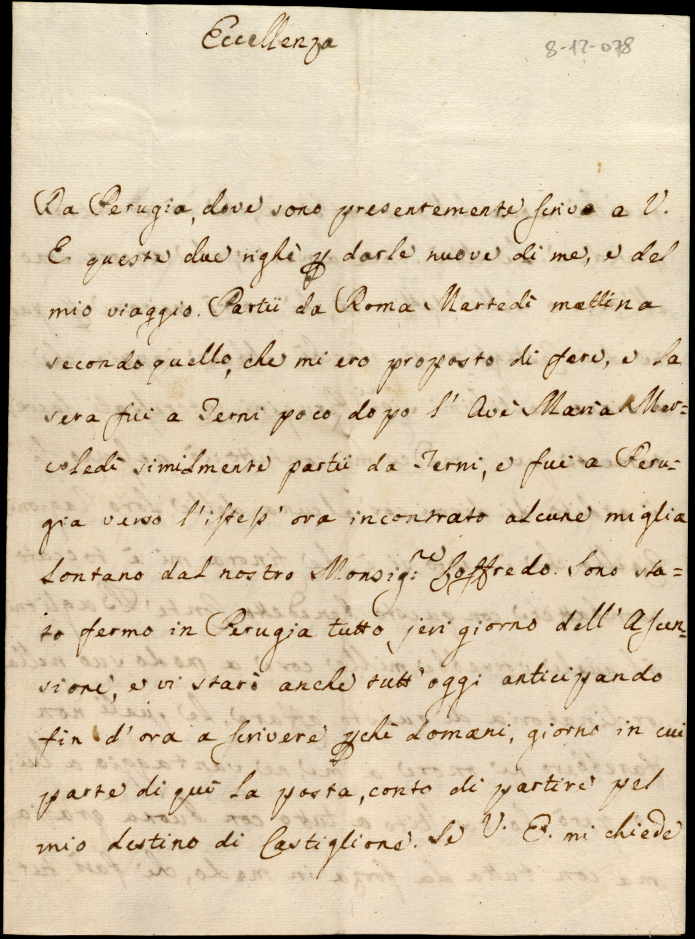 Eccellenza
8-12-078
Da Perugia, dove sono presentemente scrivo a V.
E queste due righe ꝑ darle nuove di me, e del
mio viaggio. Partii da Roma Martedì mattina
secondo quello, che mi ero proposto di fare, e la
sera fui a Terni poco dopo l'Ave Maria Mer=
coledì similmente partii da Terni, e fui a Peru-
gia verso l'istess' ora incontrato alcune miglia
lontano dal nostro Monsig:re Loffredo. Sono sta=
to fermo in Perugia tutto jeri giorno dell'Ascen-
sione, e vi starò anche tutt'oggi anticipando
fin d'ora a scrivere ꝑchè domani, giorno in cui
parte di quì la posta, conto di partire pel
mio destino di Castiglione. Se V. E. mi chiede